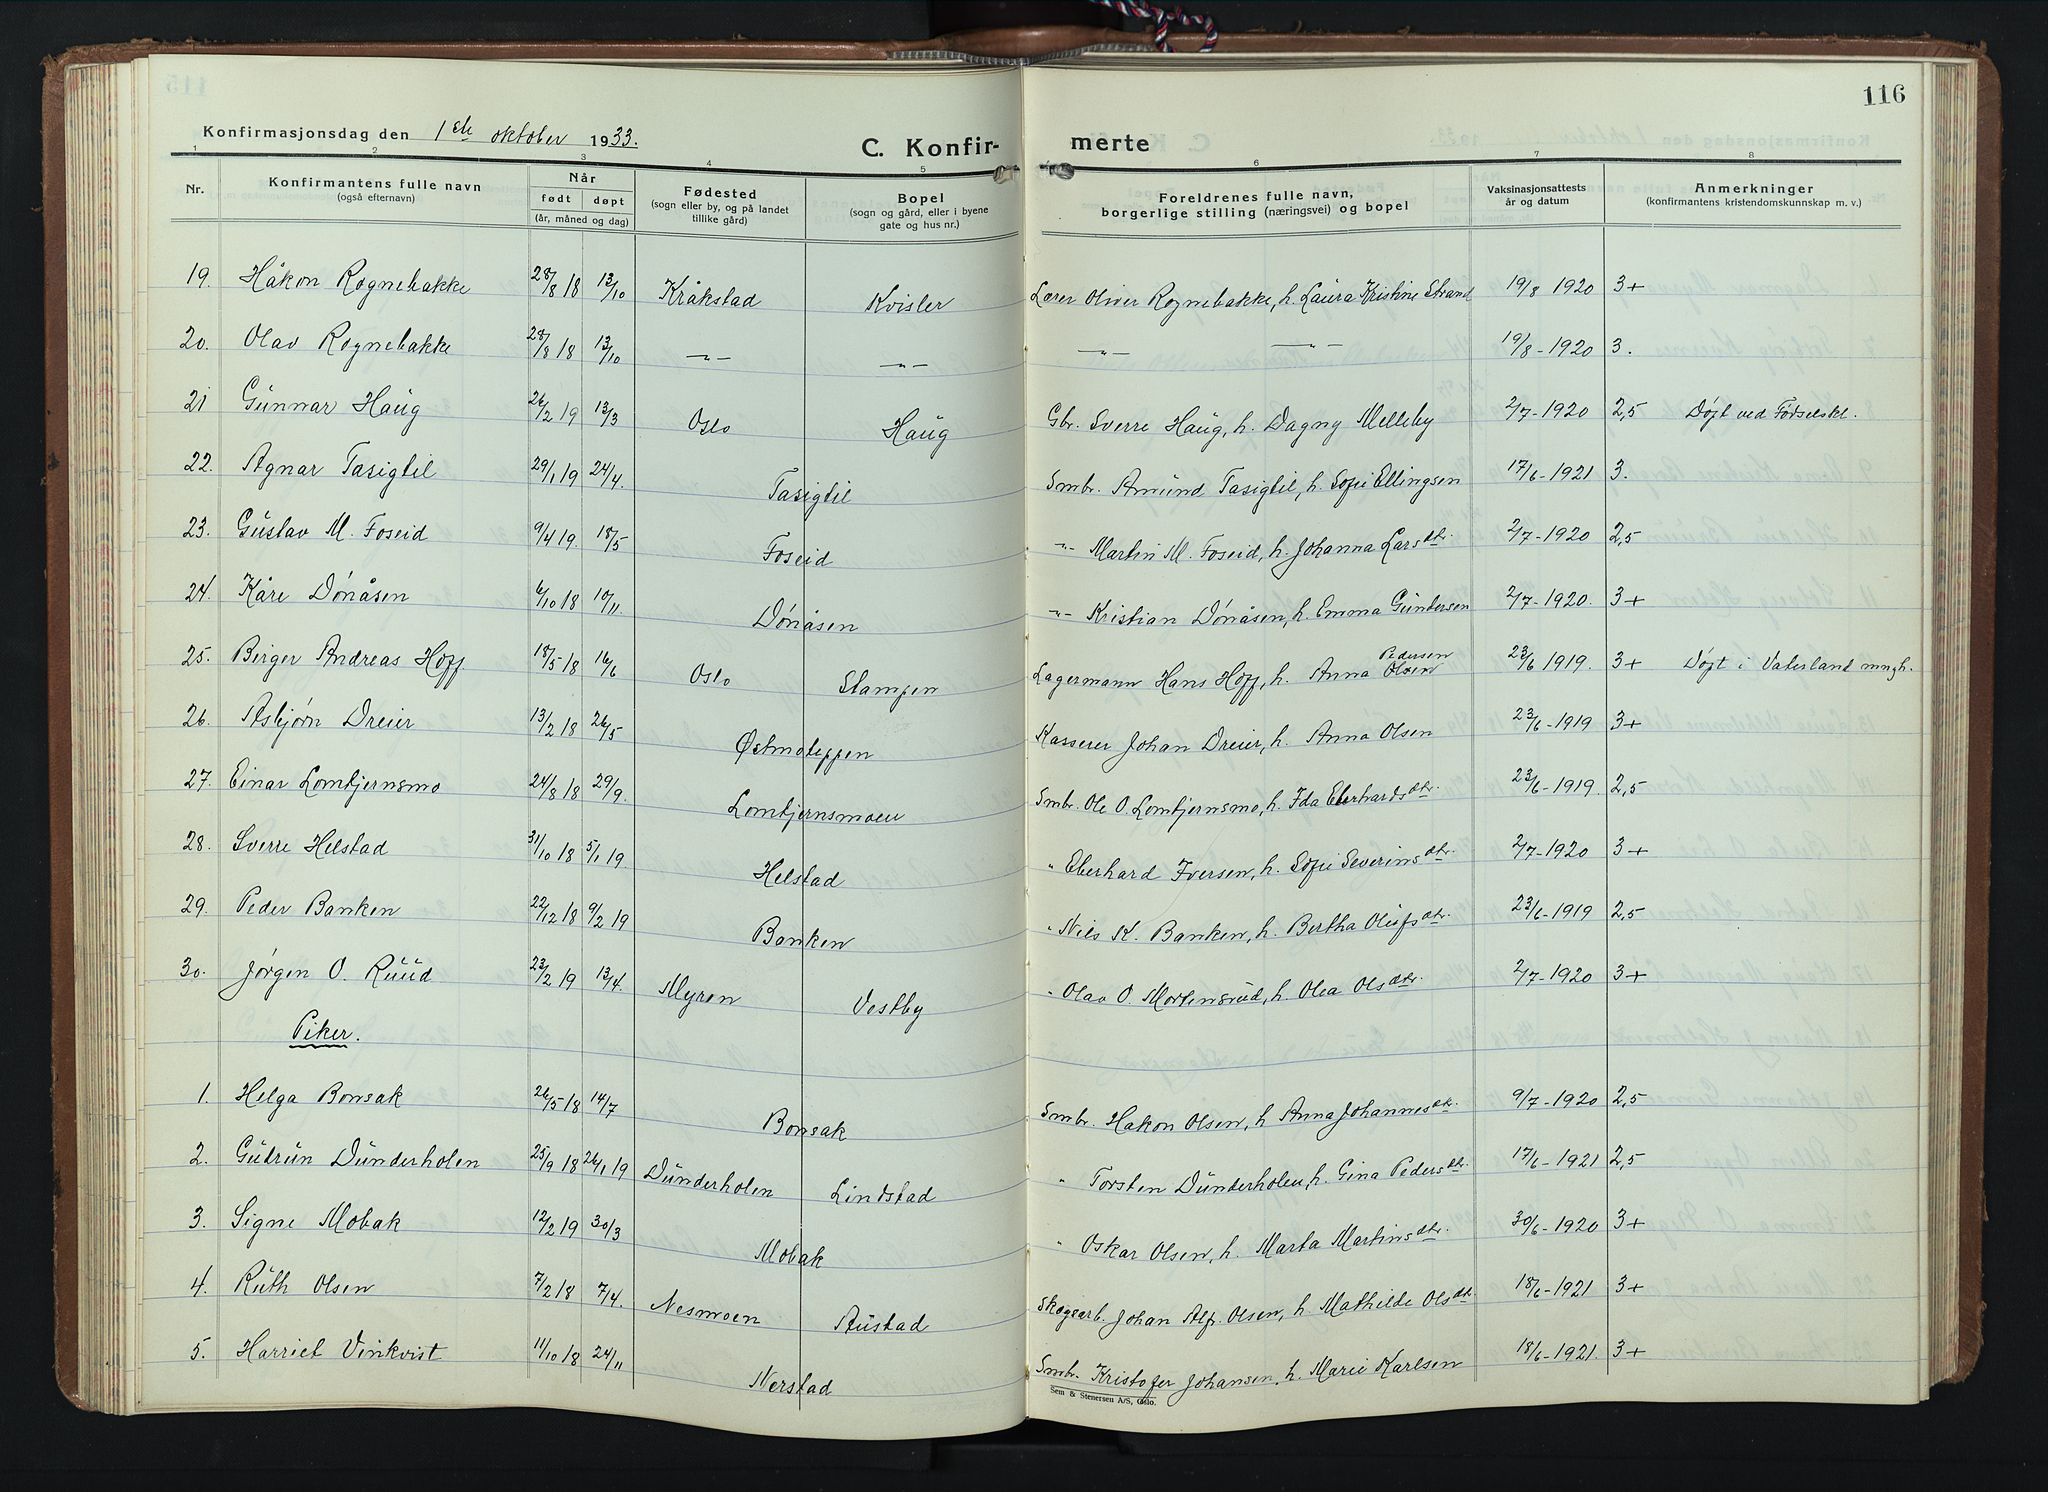 116
Konfirmasjonsdag den 1ste oktober 1933.
C. Konfir-merte
1 2 3 4 5 6 7 8
Nr. | Konfirmantens fulle navn (også efternavn) | Når født døpt (år, måned og dag) | Fødested (sogn eller by, og på landet tillike gård) | Bopel (sogn og gård, eller i byene gate og hus nr.) | Foreldrenes fulle navn, borgerlige stilling (næringsvei) og bopel | Vaksinasjonsattests år og datum | Anmerkninger (konfirmantens kristendomskunnskap m. v.)
19. Håkon Rognebakke 28/8 18 13/10 Kråkstad Kvisler Lærer Oliver Rognebakke, h. Laura Kristine Strand 19/8 1920 3+
20. Olav Rognebakke 28/8 18 13/10 -"- -"- -"- -"- 19/8 - 1920 3.
21 Gunnar Haug 26/2 19 13/3 Oslo Haug Gbr. Sverre Haug, h. Dagny Melleby 2/7 - 1920 2,5 Døpt ved Fødselskl.
22. Agnar Tasigtil 29/1 19 24/4. Tasigtil Smbr. Amund Tasigtil, h. Sofie Ellingsen 17/6 - 1921 3.
23. Gustav M. Foseid 9/4 19. 18/5 Foseid -"- Martin M. Foseid, h. Johanna Larsdtr. 2/7 - 1920 2,5
24. Kåre Dønåsen 6/10 18 10/11. Dønåsen -"- Kristian Dønåsen, h. Emma Gundersen 2/7 - 1920. 3+
25. Birger Andreas Hoff 18/5 18 16/6 Oslo Stampen Lagermann Hans Hoff, h. Anna Pedersen Olsen 23/6 1919. 3+ Døpt i Vaterland mngh.
26. Asbjørn Dreier 13/2 18 26/5 Østmoteppen Kasserer Johan Dreier, h. Anna Olsen 23/6 - 1919 3+
27. Einar Lomtjernsmo 24/8 18 29/9. Lomtjernsmoen Smbr. Ole O. Lomtjernsmo, h. Ida Eberhardsdtr. 23/6 - 1919. 2,5
28. Sverre Helstad 31/10 18 5/1 19. Helstad " Eberhard Iversen, h. Sofie Severinsdtr. 2/7 - 1920 3+
29. Peder Banken 22/12 18 9/2 19 Banken " Nils K. Banken, h. Bertha Olufsdtr. 23/6 - 1919 2,5
30. Jørgen O. Ruud 23/2 19 13/4. Myren Vestby " Olav O. Mortensrud, h. Olea Olsdtr. 2/7 - 1920 3+
Piker.
1. Helga Bonsak 26/5 18 14/7 Bonsak Smbr. Hakon Olsen, h Anna Johannesdtr. 9/7 - 1920 2,5
2. Gudrun Dunderholen 25/9 18 26/1 19 Dunderholen Lindstad " Torsten Dunderholen, h. Gina Pedersdtr. 17/6 - 1921 2,5
3. Signe Mobak 12/2 19 30/3 Mobak " Oskar Olsen, h. Marta Martinsdtr. 30/6 - 1920 3+
4. Ruth Olsen 7/2 18 7/4. Nesmoen Austad Skogsarb. Johan Alf. Olsen, h. Mathilde Olsdtr. 18/6 - 1921 3+
5. Harriet Vinkvist 11/10 18 24/11 Nerstad Smbr. Kristofer Johansen, h. Marie Karlsen 18/6 - 1921. 3+
Sem & Stenersen A/S, Oslo.